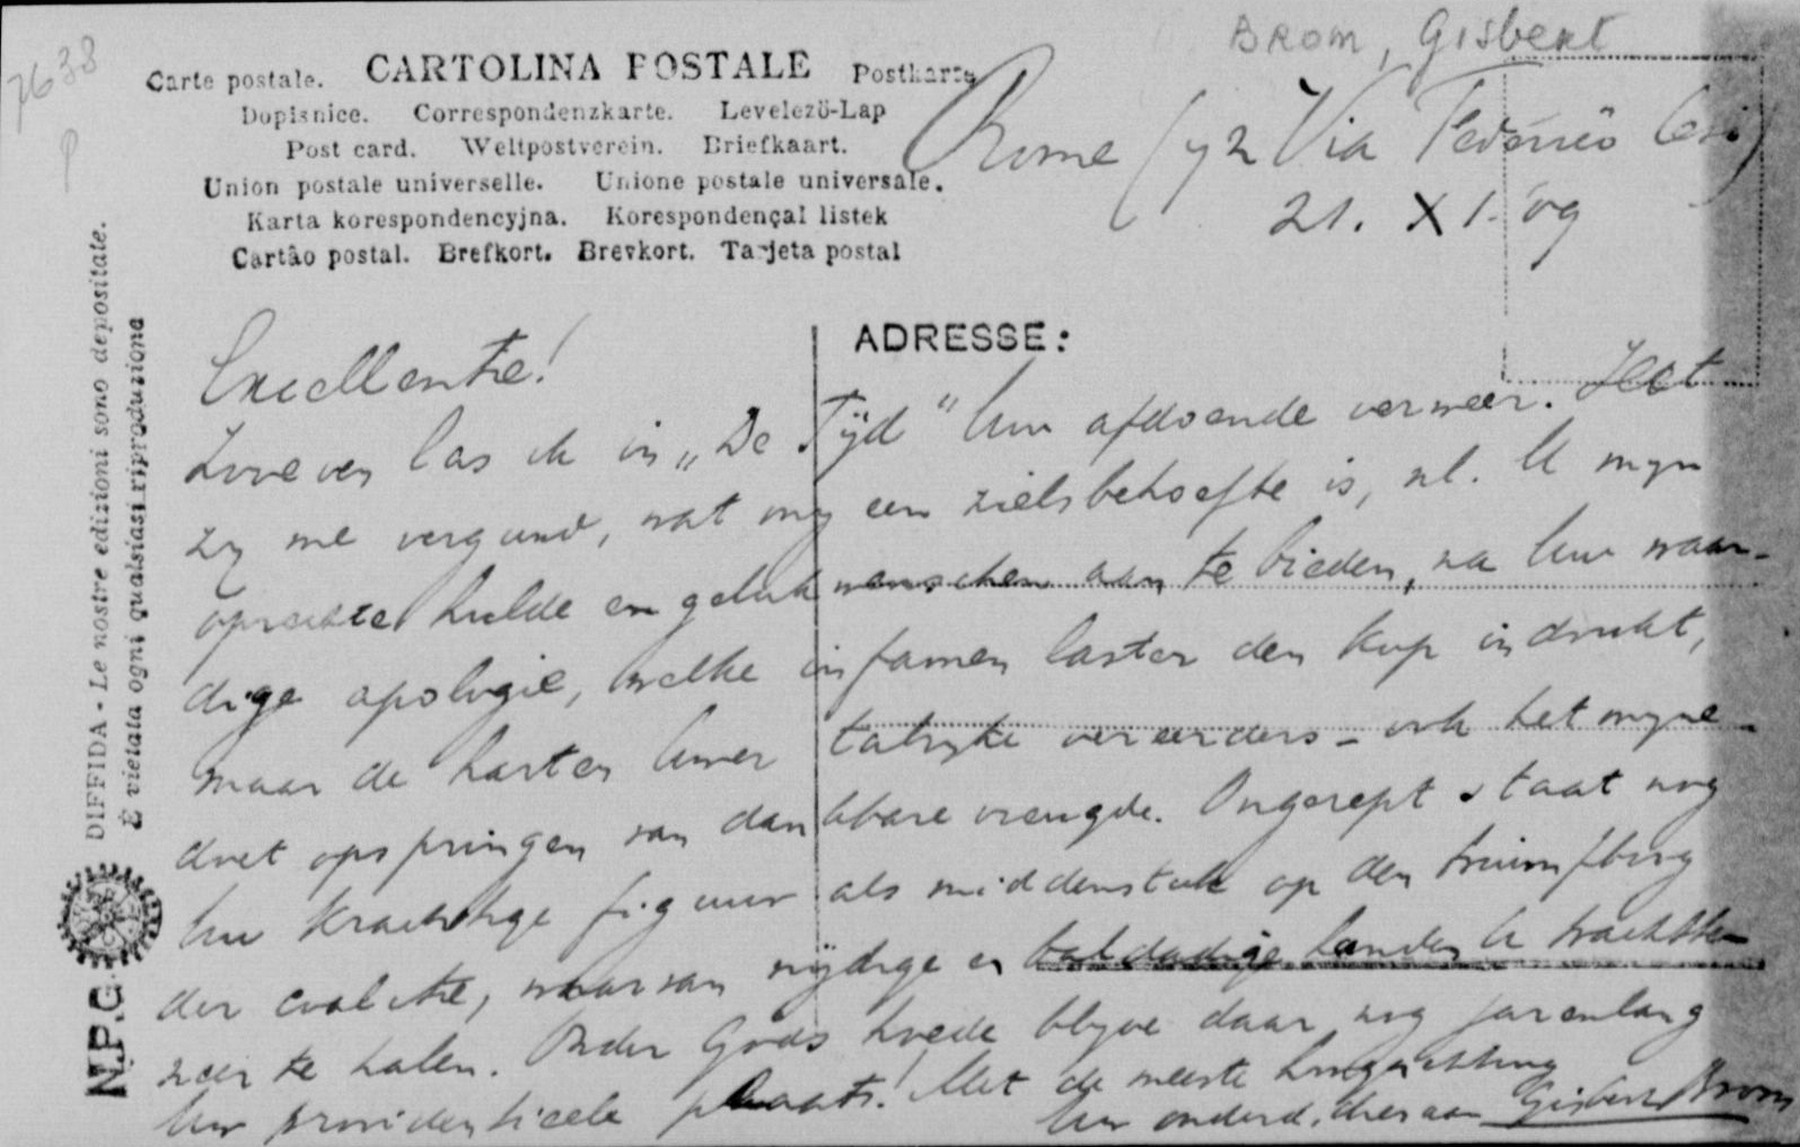 7638
P
BROM, Gisbert
Carte postale. CARTOLINA POSTALE Postkarte
Dopisnice. Correspondenzkarte. Levelezö-Lap
Post card. Weltpostverein. Briefkaart.
Union postale universelle. Unione postale universale.
Karta korespondencyjna. Korespondençal listek
Cartâo postal. Brefkort. Brevkort. Tarjeta postal
Rome (72 Via Federico Cesi)
21. XI. 09
DIFFIDA - Le nostre edizioni sono depositate.
È vietata ogni qualsiasi riproduzione
N.P.G.
ADRESSE:
Excellentie!
Zooeven las ik in „De Tijd" Uw afdoende verweer. Het
zy me vergund, wat my een zielsbehoefte is, nl. U myn
oprechte hulde en gelukwenschen aan te bieden, na Uw waar-
dige apologie, welke infamen laster den kop indrukt,
maar de harten Uwer talryke vereerders - ook het myne -
doet opspringen van dankbare vreugde. Ongerept staat nog
Uw krachtige figuur als middenstuk op den triumfboog
der coalitie, waarvan nijdige en baldadige handen U trachtten
neer te halen. Onder Gods hoede blyve daar nog jarenlang
Uw providentieele plaats! Met de meeste hoogachting
Uw onderd. dienaar Gisbert Brom